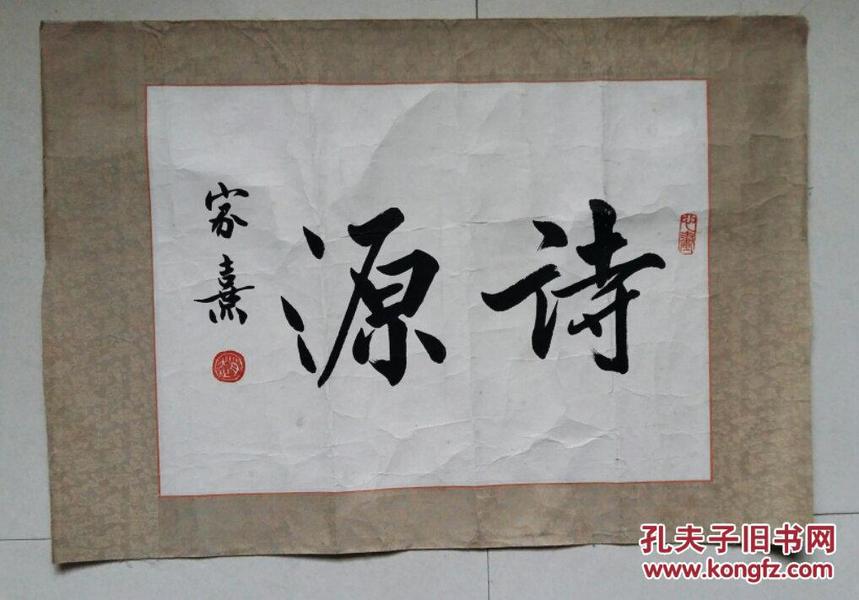 诗源
家熹
孔夫子旧书网
www.kongfz.com